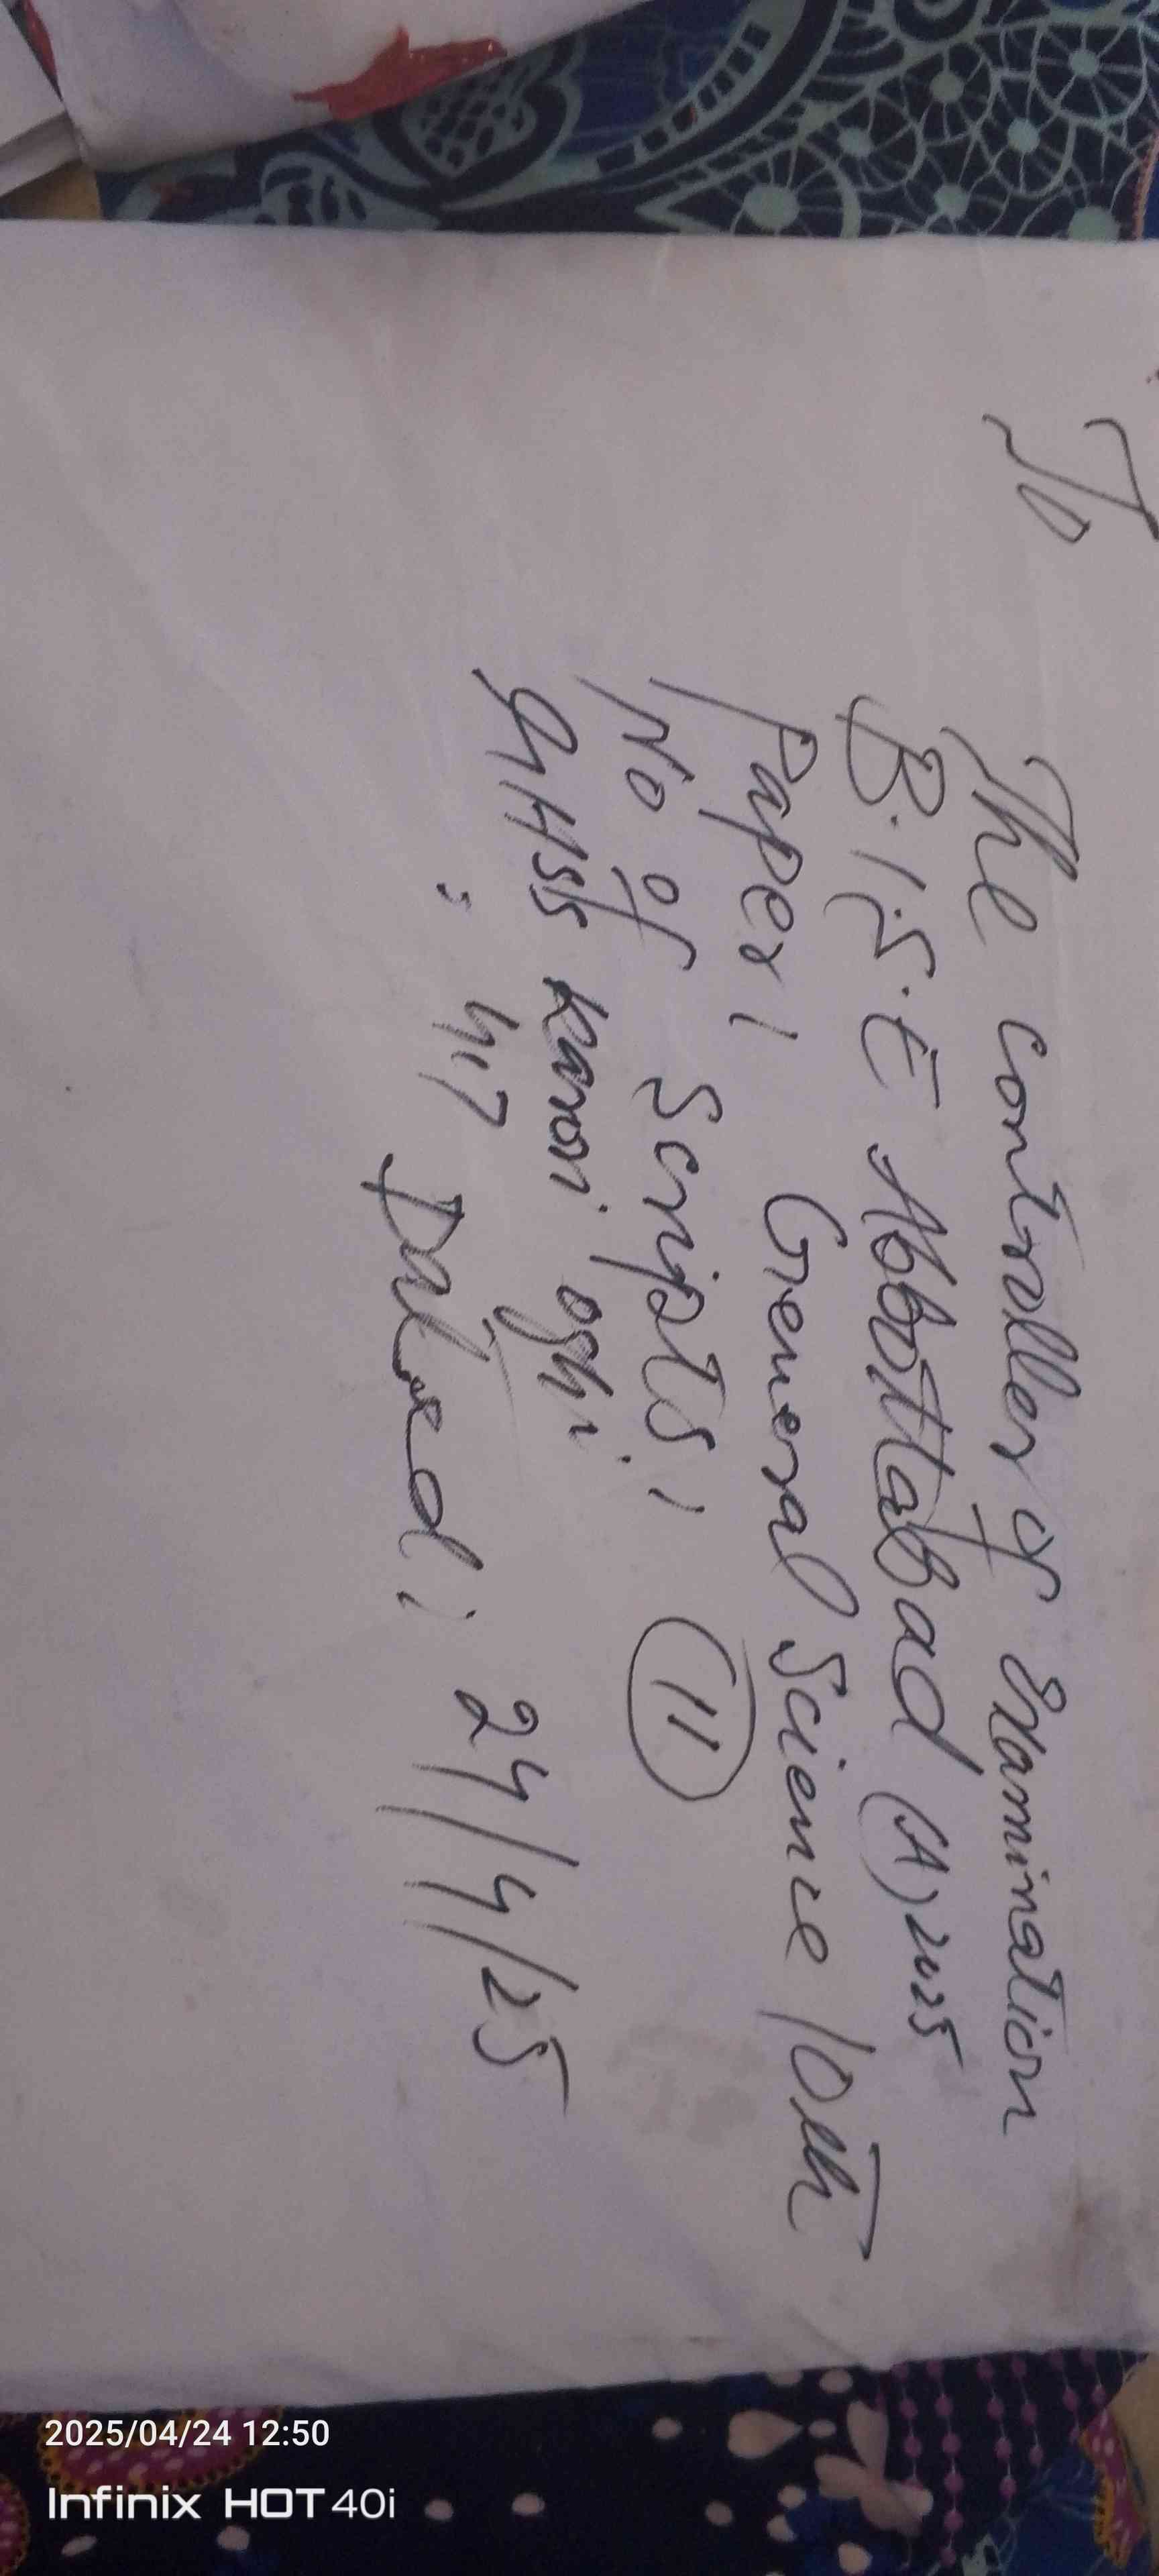 To
The controller of Examination
B.I.S.E Abbottabad (A) 2025
Paper / General Science 10th
No of Scripts: 11
GHSS Karori oghi
Dated: 24/4/25
2025/04/24 12:50
Infinix HOT 40i